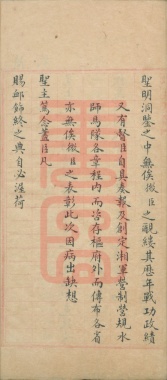 聖明洞鑒之中無俟微臣之覼縷其歷年戰功政績
又有督臣自具奏報及創定湘軍營制營規水
師馬隊各章程內而咨存樞府外而傳布各省
亦無俟微臣之表彰此次因病出缺想
聖主篤念藎臣凡
賜卹飾終之典自必渥荷